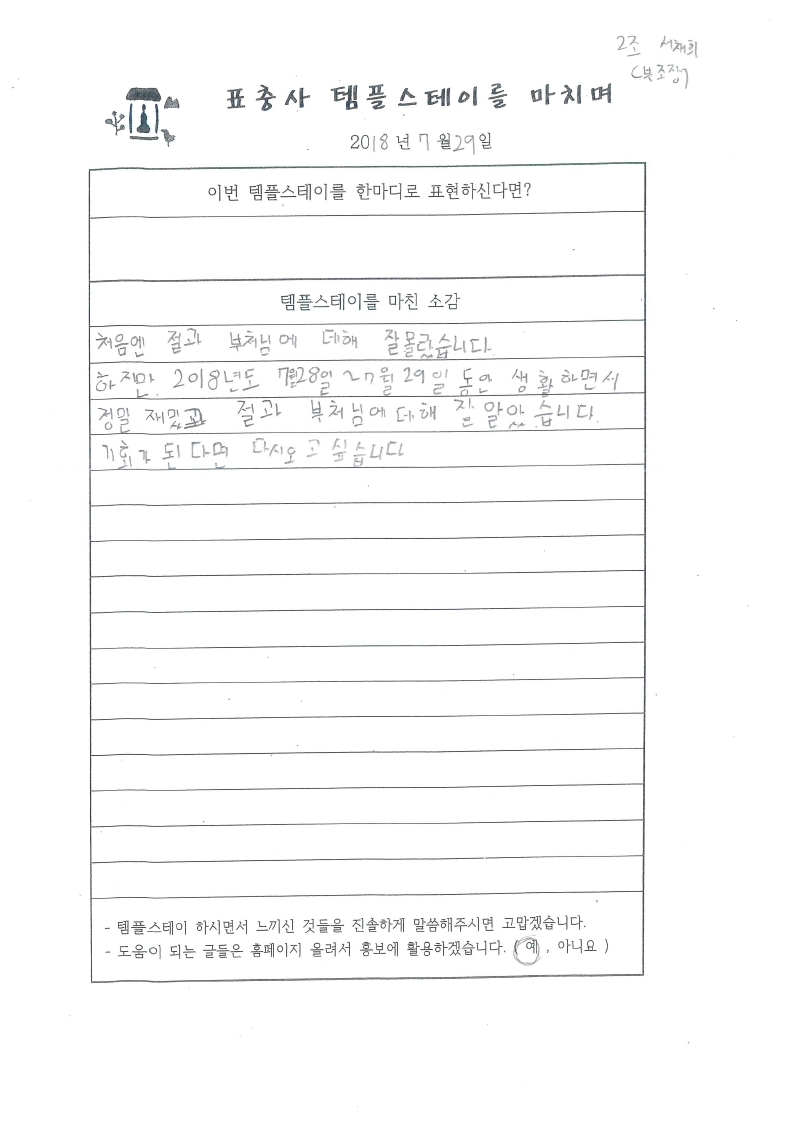 2조 서채희
(부조장)
표충사 템플스테이를 마치며
2018년 7월 29일
이번 템플스테이를 한마디로 표현하신다면?
템플스테이를 마친 소감
처음엔 절과 부처님에 데해 잘몰랐습니다.
하지만 2018년도 7월28일~7월 29일 동안 생활하면서
정말 재밌고 절과 부처님에 데해 잘 알았습니다.
기회가 된다면 다시오고 싶습니다
- 템플스테이 하시면서 느끼신 것들을 진솔하게 말씀해주시면 고맙겠습니다.
- 도움이 되는 글들은 홈페이지 올려서 홍보에 활용하겠습니다. ( 예 , 아니요 )